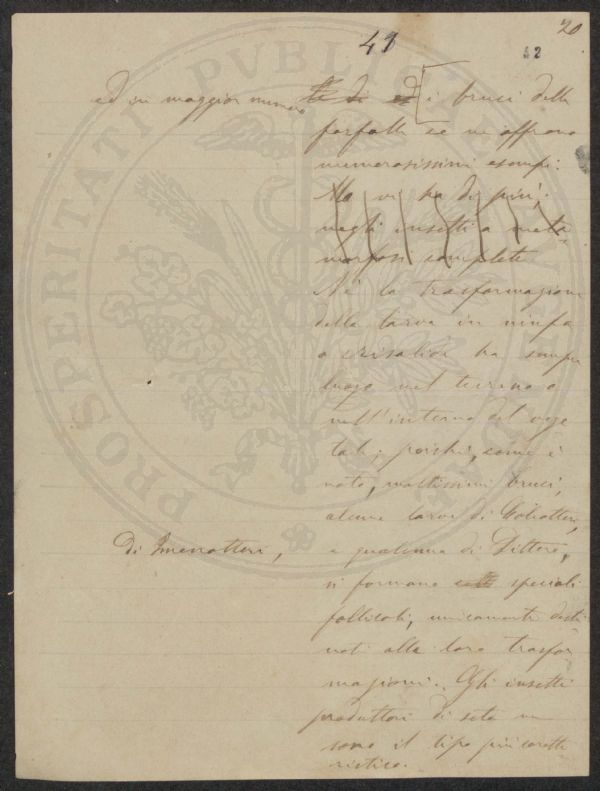 20
41
42
ed in maggior numero
i bruci delle
farfalle ce ne offrono
numerosissimi esempi:
Ma vi ha di più;
negli insetti a meta
morfosi complete
Nè la trasformazione
della larva in ninfa
o crisalide ha sempre
luogo nel terreno o
nell'interno del vege
tale; poichè, come è
noto, moltissimi bruci,
alcune larve di Coleotteri,
di Imenotteri,
e qualcuna di Ditteri,
si formano speciali
follicoli, unicamente desti
nati alle loro trasfor
mazioni. Gli insetti
produttori di seta ne
sono il tipo più caratte
ristico.
PROSPERITATI PVBLICAE